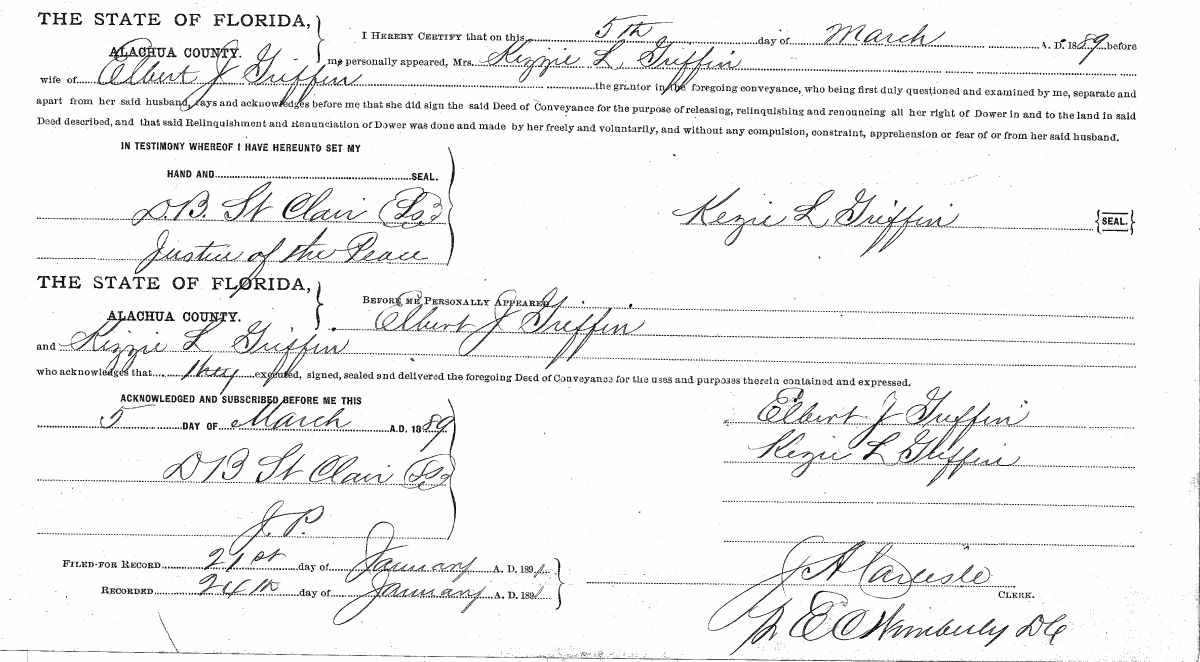 THE STATE OF FLORIDA,
ALACHUA COUNTY.
I HEREBY CERTIFY that on this 5th day of March A. D. 1889 before
me personally appeared, Mrs. Kizzie L Griffin
wife of Elbert J Griffin the grantor in the foregoing conveyance, who being first duly questioned and examined by me, separate and
apart from her said husband, says and acknowledges before me that she did sign the said Deed of Conveyance for the purpose of releasing, relinquishing and renouncing all her right of Dower in and to the land in said
Deed described, and that said Relinquishment and Renunciation of Dower was done and made by her freely and voluntarily, and without any compulsion, constraint, apprehension or fear of or from her said husband.
IN TESTIMONY WHEREOF I HAVE HEREUNTO SET MY
HAND AND SEAL.
D.B. St Clair Ls
Kezie L Griffin {SEAL.}
Justice of the Peace
THE STATE OF FLORIDA,
ALACHUA COUNTY.
BEFORE ME PERSONALLY APPEARED
Elbert J Griffin
and Kizzie L Griffin
who acknowledges that they executed, signed, sealed and delivered the foregoing Deed of Conveyance for the uses and purposes therein contained and expressed.
ACKNOWLEDGED AND SUBSCRIBED BEFORE ME THIS
5 DAY OF March A.D. 1889
Elbert J Griffin
Kezie L Griffin
D B St Clair Ls
J. P.
FILED FOR RECORD 21st day of January A. D. 1891
RECORDED 24th day of January A. D. 1891
J A Carlisle
CLERK.
E C Wimberly DC